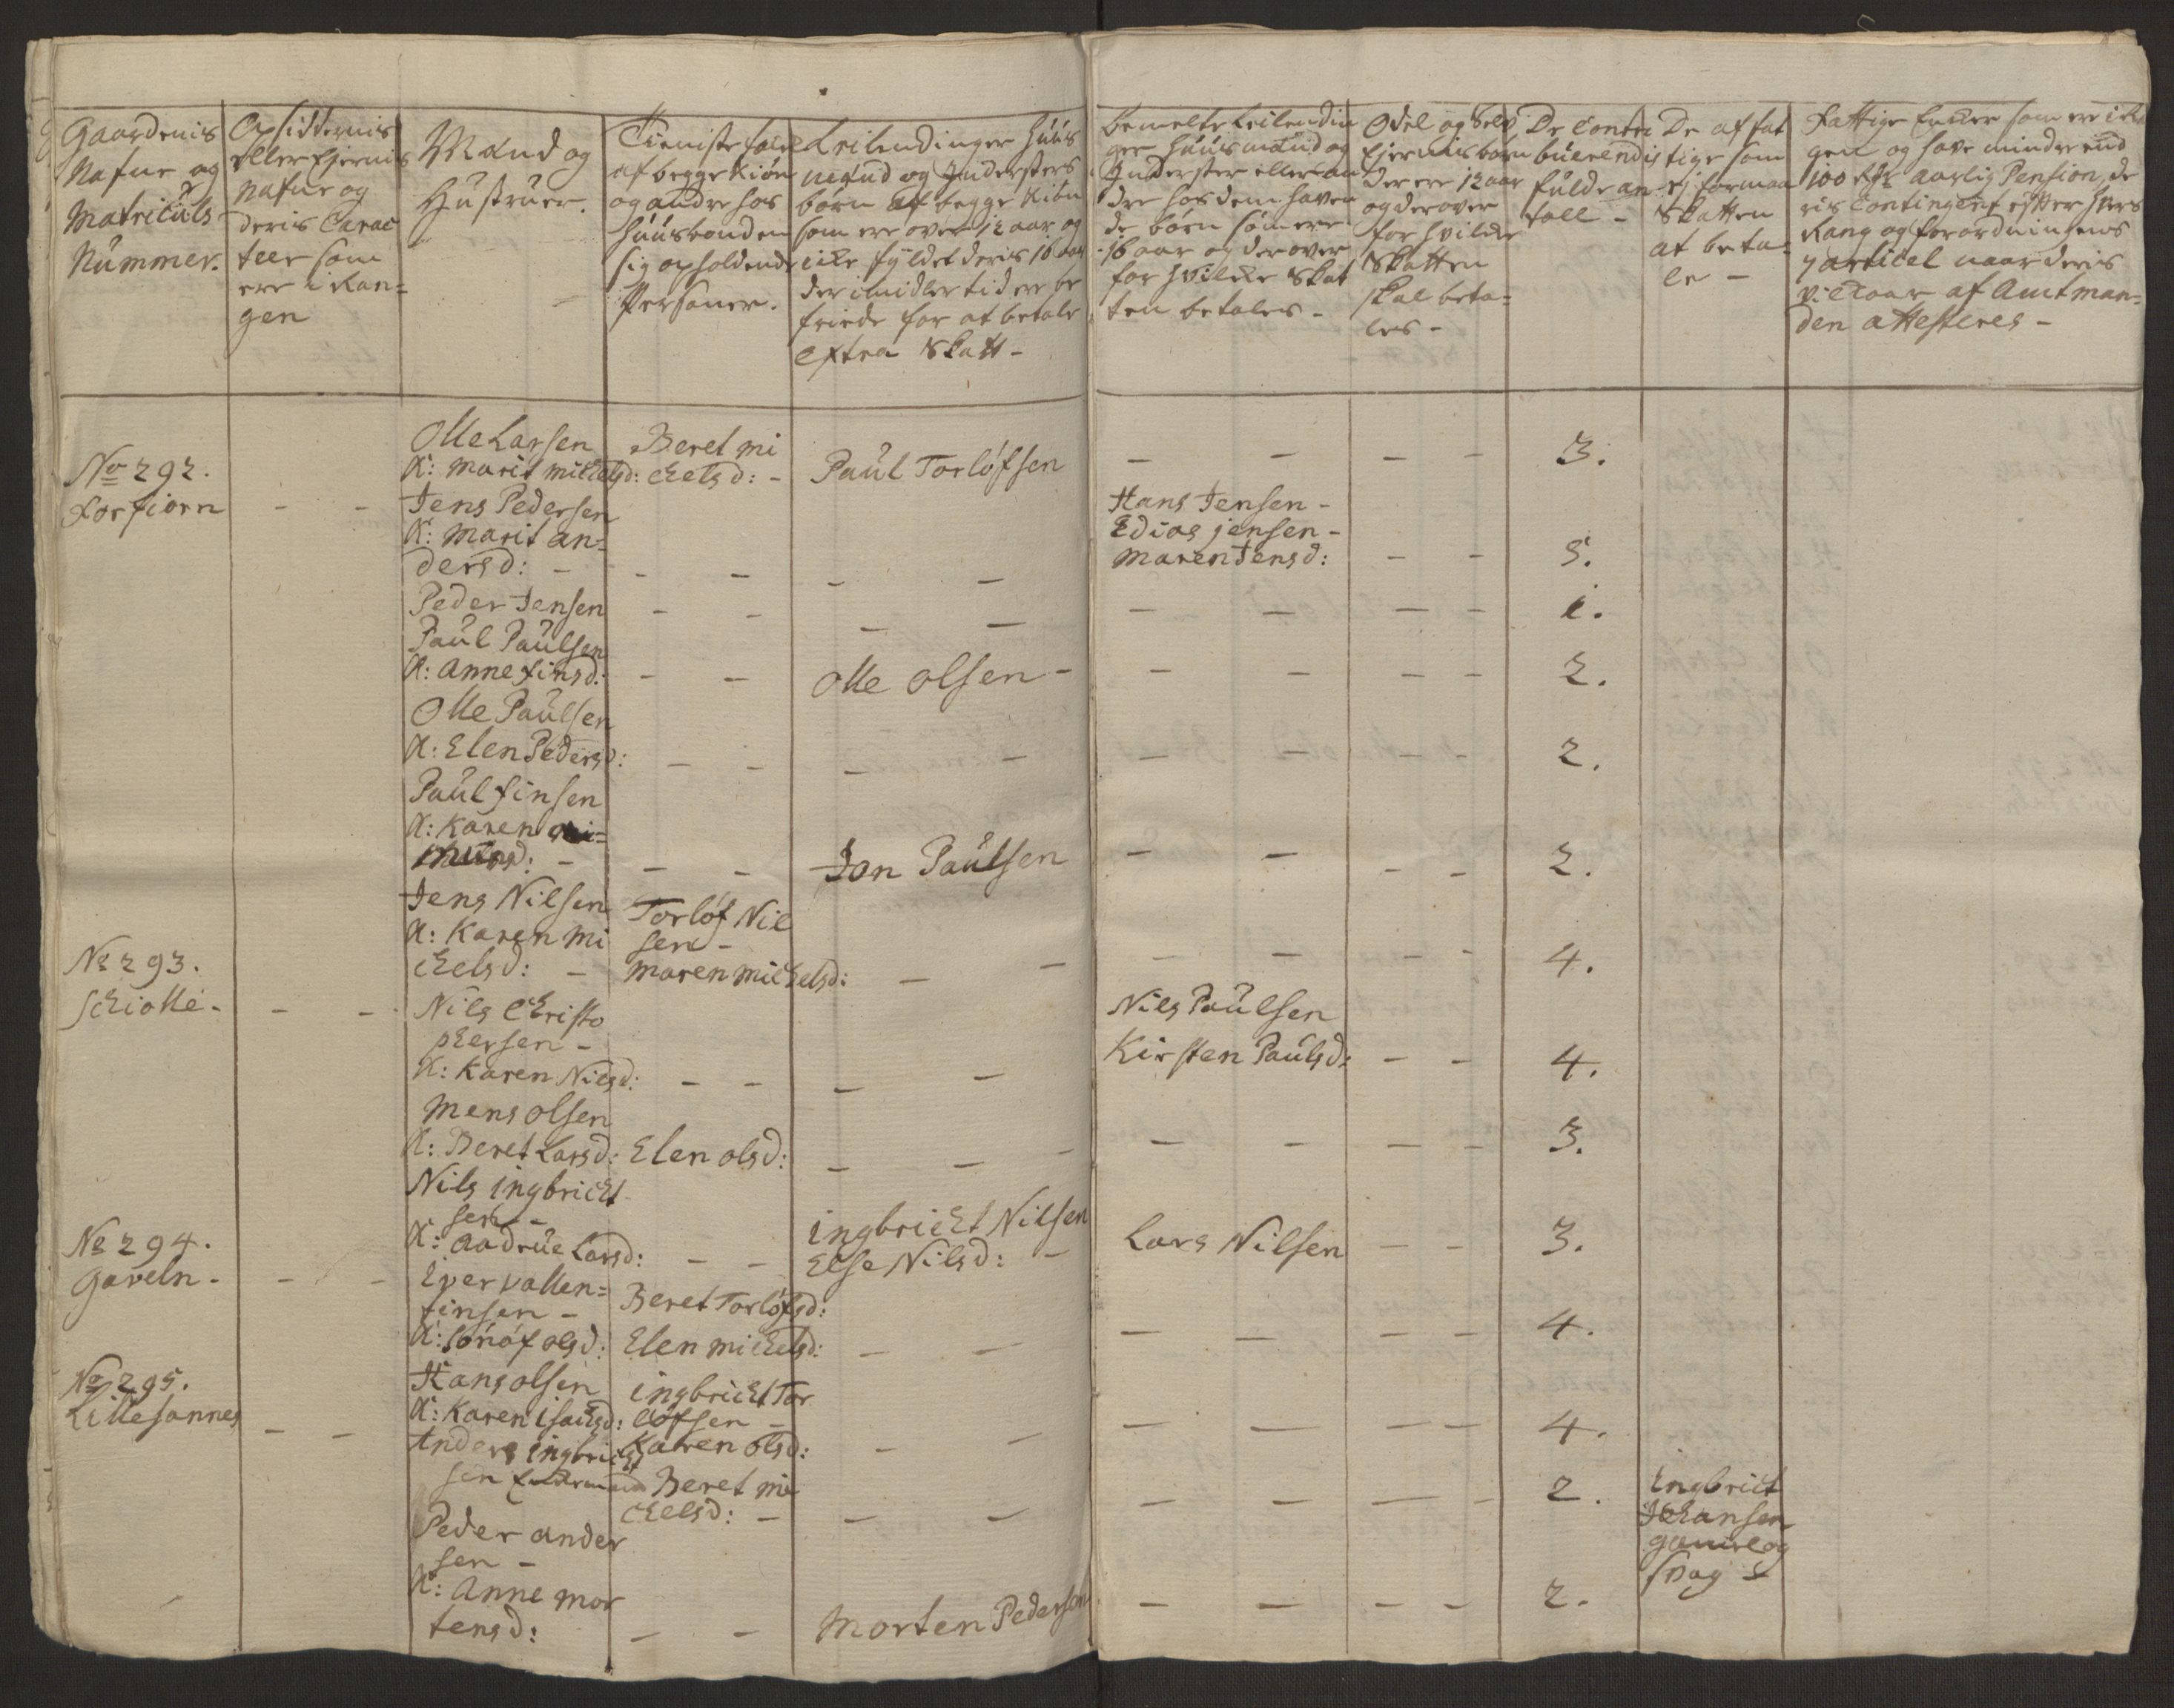 Gaardenis
Nafne og
Matriculs
Nummer.
Opsiddernis
eller Ejernis
Nafne og
deris Carac
teer som
ere i Ran=
gen
Mænd og
Hustruer.
Tieniste folck
af begge Kiøn
og andre hos
Huusbonden
sig opholdende
Persohner.
Leilendinger Huus
mænd og Indersters
børn af begge Kiøn
som ere over 12 aar og
icke fyldet deris 16 aar
der imidlertid er be
friede for at betale
Extra Skatt -
bemelte Leilendin
ger Huusmænd og
Inderster eller an
dre hos dem haven
de børn som ere
16 aar og derover
for hvilcke Skat
ten betales -
Odel og Selv
Ejernis børn
der ere 12 aar
og derover
for hvilcke
Skatten
skal beta=
les -
De Contri
buerendis
fulde an
tall -
De af fat
tige som
ej formaa
Skatten
at beta=
le -
Fattige Encker som ere i Ra
gen og have mindre end
100 Rdr aarlig Pension, de
ris Contingent efter hvers
Rang og forordningens
7 articel naar deris
vilckaar af Amtman=
den attesteres -
No 292.
Forfiorn - -
Olle Larsen
K: Marit Michelsd:
Beret Mi
chelsd: -
Paul Torløfsen
- - - - 3.
Jens Pedersen
K: Marit An=
dersd: - - - - -
Hans Jensen -
Edias Jensen -
Maren Jensd: - - 5.
Peder Jensen - - - - - - - - 1.
Paul Paulsen
K: Anne Finsd: - - Olle Olsen - - - - - 2.
Olle Paulsen
K: Elen Pedersd: - - - - - - - - 2.
Paul Finsen
K: Karen
- - - Jon Paulsen - - - - 2.
No 293.
Schiolle - - -
Jens Nilsen
K: Karen Mi
chelsd: -
Torløf Nil
sen -
Maren Michelsd: - - - - - - 4.
Nils Christo
phersen -
K: Karen Nilsd: - - - -
Nils Paulsen
Kirsten Paulsd: - - 4.
Mens Olsen
K: Beret Larsd: Elen Olsd: - - - - - - - 3.
No 294.
Gaveln - - -
Nils Ingbricht
sen -
K: Aadrue Larsd: - -
Ingbricht Nilsen
Else Nilsd: -
Lars Nilsen - - 3.
Iver Vallen=
tinsen -
K: Sønøf Olsd:
Beret Torløfsd:
Elen Michelsd: - - - - - - 4.
No 295.
Lillesannes - -
Hans Olsen
K: Karen Isachsd:
Ingbricht Tor
løfsen -
Karen Olsd: - - - - - - 4.
Anders Ingbricht
sen Enckemand
Beret Mi
chelsd: - - - - - - - 2.
Ingbrict
Johansen
gammel og
svag -
Peder Ander
sen -
K: Anne Mor
tensd: - - Morten Pedersen - - - - 2.